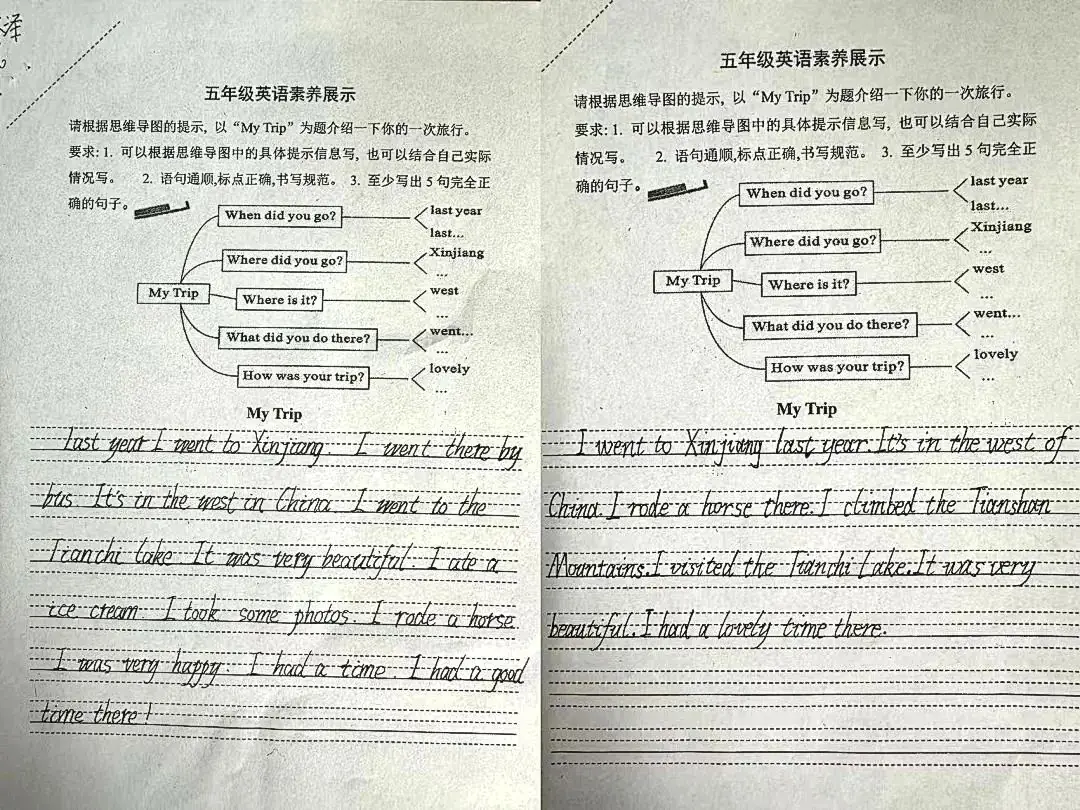 泽
五年级英语素养展示
请根据思维导图的提示, 以“My Trip”为题介绍一下你的一次旅行。
要求: 1. 可以根据思维导图中的具体提示信息写, 也可以结合自己实际
情况写。 2. 语句通顺,标点正确,书写规范。 3. 至少写出 5 句完全正
确的句子。
When did you go?
last year
last...
Where did you go?
Xinjiang
...
My Trip
Where is it?
west
...
What did you do there?
went...
...
How was your trip?
lovely
...
My Trip
last year I went to Xinjiang. I went there by
bus. It's in the west in China. I went to the
Tianchi lake. It was very beautiful. I ate a
ice cream. I took some photos. I rode a horse.
I was very happy. I had a time. I had a good
time there!
五年级英语素养展示
请根据思维导图的提示, 以“My Trip”为题介绍一下你的一次旅行。
要求: 1. 可以根据思维导图中的具体提示信息写, 也可以结合自己实际
情况写。 2. 语句通顺,标点正确,书写规范。 3. 至少写出 5 句完全正
确的句子。
When did you go?
last year
last...
Where did you go?
Xinjiang
...
My Trip
Where is it?
west
...
What did you do there?
went...
...
How was your trip?
lovely
...
My Trip
I went to Xinjiang last year. It's in the west of
China. I rode a horse there. I climbed the Tianshan
Mountains. I visited the Tianchi Lake. It was very
beautiful. I had a lovely time there.